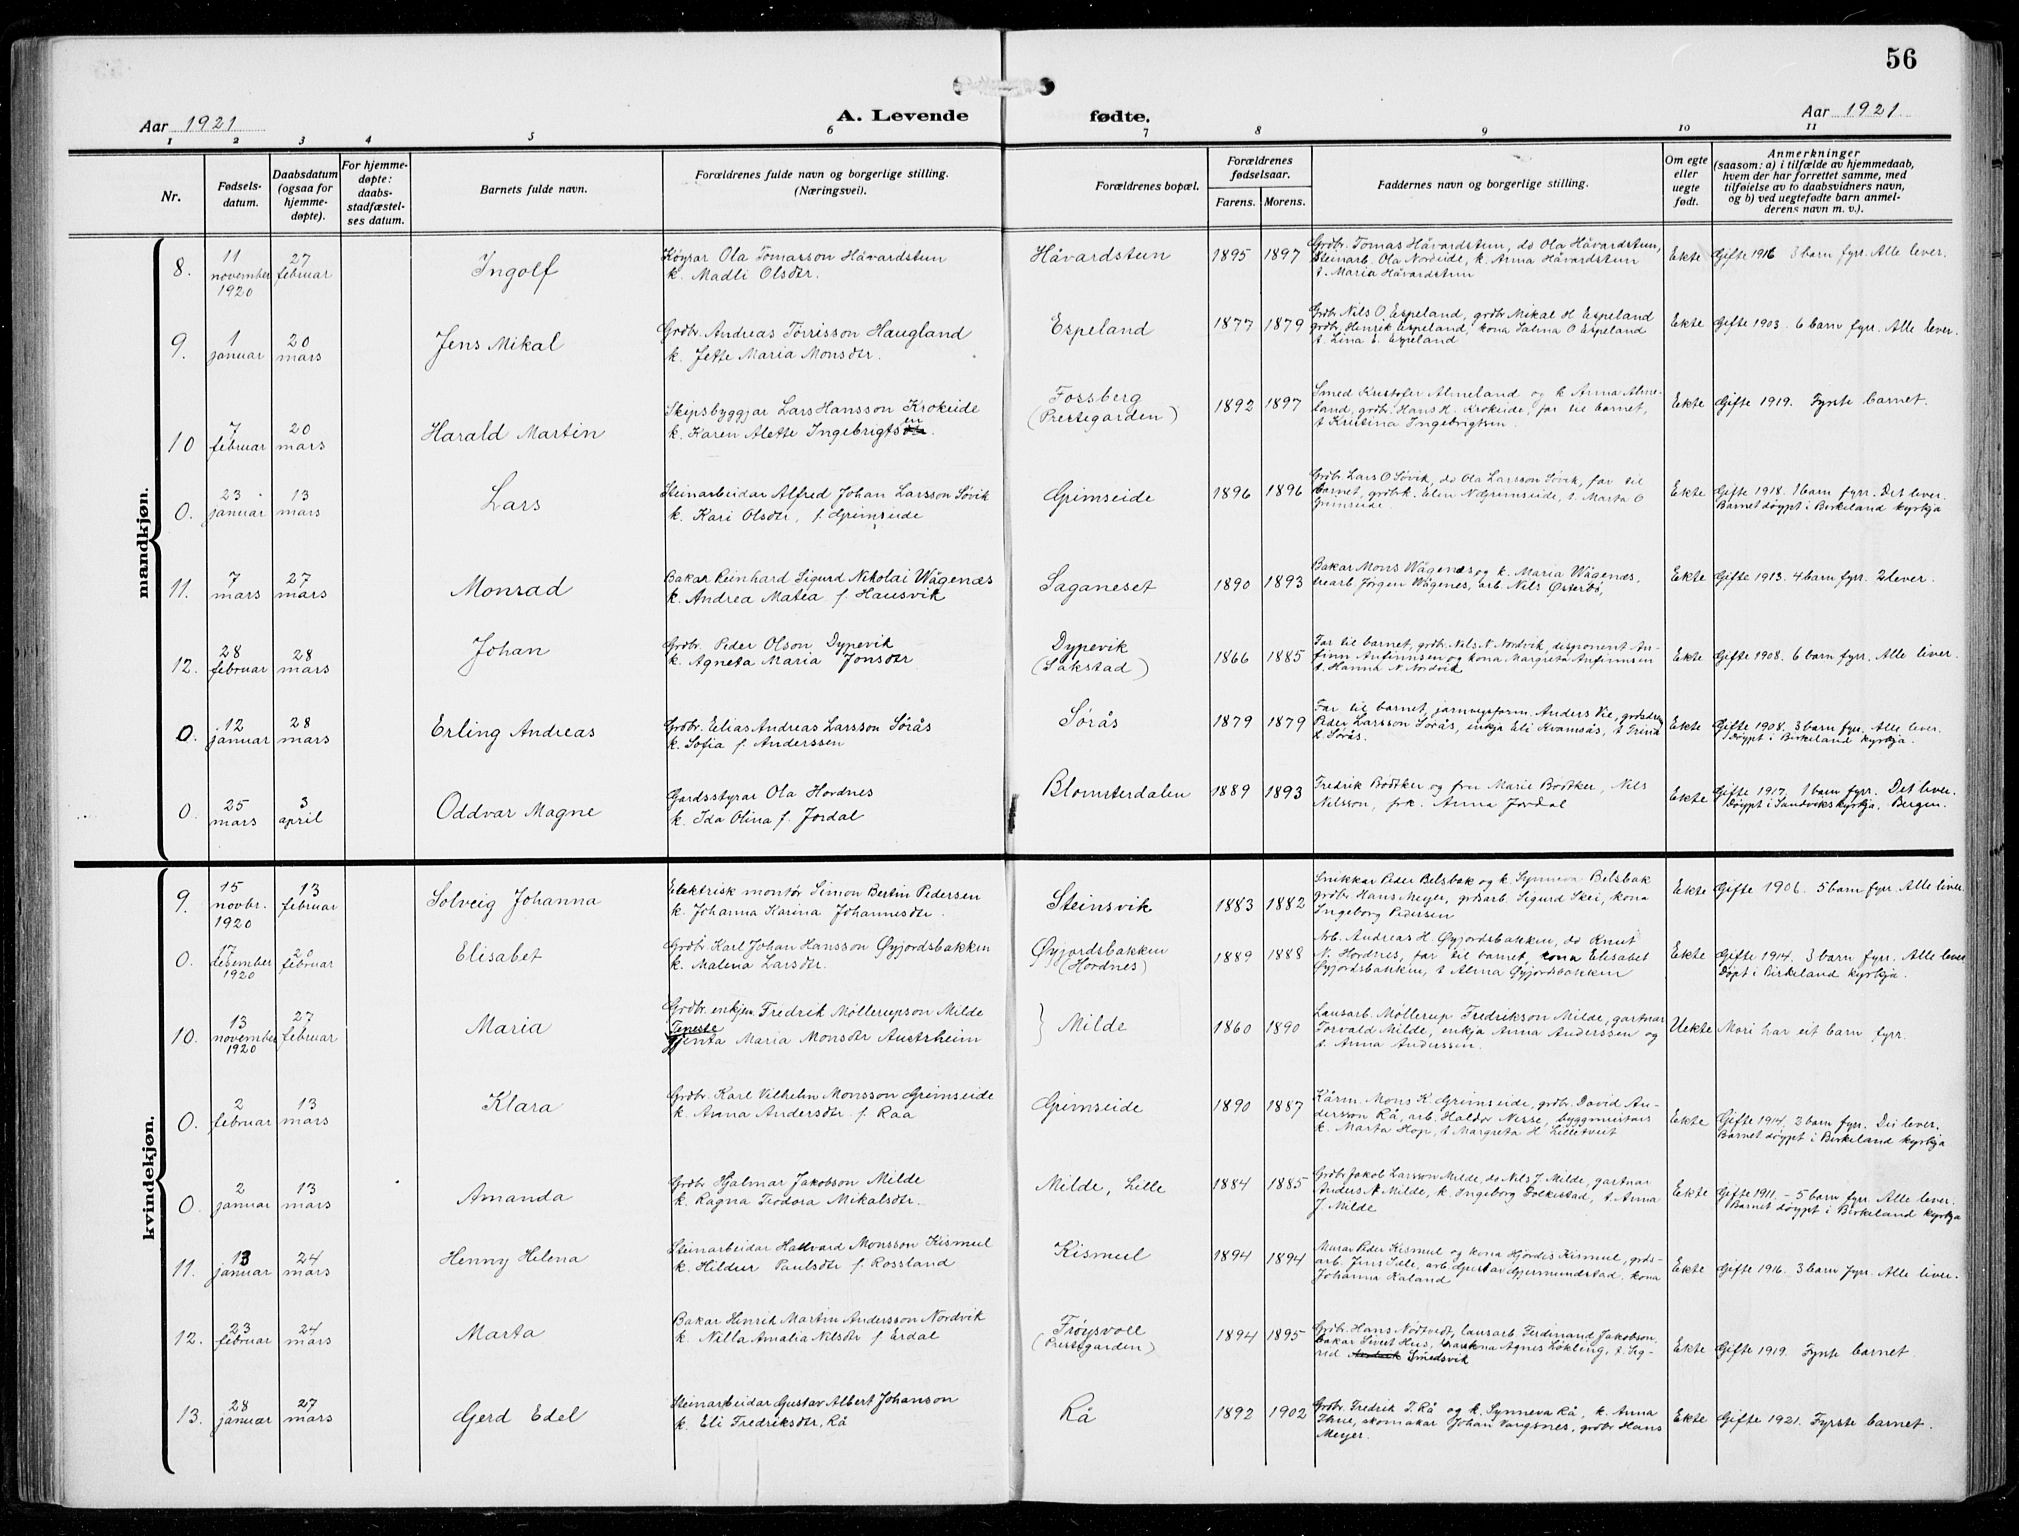 56
Aar 1921
A. Levende fødte.
Aar 1921
1 2 3 4 5 6 7 8 9 10 11
Nr.
Fødsels-
datum.
Daabsdatum
(ogsaa for
hjemme-
døpte).
For hjemme-
døpte:
daabs-
stadfæstel-
ses datum.
Barnets fulde navn.
Forældrenes fulde navn og borgerlige stilling.
(Næringsvei).
Forældrenes bopæl.
Forældrenes
fødselsaar.
Farens. Morens.
Faddernes navn og borgerlige stilling.
Om egte
eller
uegte
født.
Anmerkninger
(saasom: a) i tilfælde av hjemmedaab,
hvem der har forrettet samme, med
tilføielse av to daabsvidners navn,
og b) ved uegtefødte barn anmel-
derens navn m. v.).
mandkjøn.
8.
11
november
1920
27
februar
Ingolf
Køyrar Ola Tomasson Håvardstun
k. Madli Olsdtr.
Håvardstun
1895 1897
Grdbr. Tomas Håvardstun, do Ola Håvardstun,
Steinarb. Ola Nordeide, k. Anna Håvardstun
t. Maria Håvardstun
Ekte
Gifte 1916 3 barn fyrr. Alle lever.
9.
1
januar
20
mars
Jens Mikal
Grdbr. Andreas Tørrisson Haugland
k. Jette Maria Monsdtr.
Espeland
1877 1879
Grdbr. Nils O. Espeland, grdbr. Mikal H Espeland
grdbr. Henrik Espeland, kona Salina O Espeland
t. Lina E. Espeland
Ekte
Gifte 1903. 6 barn fyrr. Alle lever.
10
7
februar
20
mars
Harald Martin
Skipsbyggjar Lars Hansson Krokeide
k. Karen Alette Ingebrigtsen.
Fossberg
(Prestegarden)
1892 1897
Smed Kristofer Almeland og k Anna Alme-
land, grdbr. Hans H. Krokeide, far til barnet,
t Kristina Ingebrigtsen.
Ekte
Gifte 1919. Fyrste barnet.
0.
23
januar
13
mars
Lars
Steinarbeidar Alfred Johan Larsson Søvik
k. Kari Olsdtr, f. Grimseide
Grimseide
1896 1896
Grdbr Lars O Søvik, do Ola Larsson Søvik, far til
barnet, grdbrk. Elin N Grimseide, t. Marta O
Grimseide.
Ekte
Gifte 1918. 1 barn fyrr. Det lever.
Barnet døypt i Birkeland kyrkja
11.
7
mars
27
mars
Monrad
Bakar Reinhard Sigurd Nikolai Wågenæs
k. Andrea Matea f. Hausvik
Saganeset
1890 1893
Bakar Mons Wågenæs og k. Maria Wågenes,
trearb Jørgen Wågenes, arb. Nils Østerbø,
Ekte
Gifte 1913. 4 barn fyrr. 2 lever.
12.
28
februar
28
mars
Johan
Grdbr. Peder Olson Dypevik
k. Agneta Maria Jonsdtr
Dypevik
(Sakstad)
1866 1885
Far til barnet, grdbr. Nils N. Nordvik, disponent An-
finn Anfinnsen og kona Margreta Anfinnsen
t. Hanna N Nordvik
Ekte
Gifte 1908. 6 barn fyrr. Alle liver.
0.
12
januar
28
mars
Erling Andreas
Grdbr. Elias Andreas Larsson Sørås
k. Sofia f. Anderssen
Sørås
1879 1879
Far til barnet, jarnvegsform. Anders Vie, grdsdreng
Peder Larsson Sørås, enkja Eli Kvamsås, t Trina
t. Sørås.
Ekte
Gifte 1908. 3 barn fyrr. Alle lever.
Døypt i Birkeland kyrkja.
0.
25
mars
3
april
Oddvar Magne
Gardsstyrar Ola Hordnes
k. Ida Olina f. Jordal
Blomsterdalen
1889 1893
Fredrik Bødtker og fru Marie Bødtker, Nils
Nilsson, frk. Anna Jordal
Ekte
Gifte 1917. 1 barn fyrr. Det lever.
Døypt i Sandvikskyrkja, Bergen.
kvindekjøn.
9.
15
novbr.
1920
13
februar
Solveig Johanna
Elektrisk montør Simon Bertin Pedersen
k. Johanna Karina Johannesdtr.
Steinsvik
1883 1882
Snikkar Peder Belsbak og k. Synneva Belsbak
grdbr Hans Meyer, grdsarb. Sigurd Skei, kona
Ingeborg Pedersen
Ekte
Gifte 1906. 5 barn fyrr. Alle liver.
0.
17
desember
1920
20
februar
Elisabet
Grdbr Karl Johan Hansson Øyjordsbakken
k. Malena Larsdtr.
Øyjordsbakken
(Hordnes)
1889 1888
Arb. Andreas H. Øyjordsbakken, do Knut
N. Hordnes, far til barnet, kona Elisabet
Øyjordsbakken, t Alma Øyjordsbakken
Ekte
Gifte 1914. 3 barn fyrr. Alle lever
Døpt i Birkeland kyrkja.
10.
13
november
1920
27
februar
Maria
Grdbr. enkjem. Fredrik Møllerupson Milde
Teneste
gjenta Maria Monsdtr Austrheim
} Milde
1860 1890
Lausarb. Møllerup Fredrikson Milde, gartnar
Torvald Milde, enkja Anna Anderssen og
t. Anna Anderssen.
Uekte
Mori har eit barn fyrr.
0.
2
februar
13
mars
Klara
Grdbr. Karl Vilhelm Monsson Grimseide
k. Anna Andersdtr f. Raa
Grimseide
1890 1887
Kårm. Mons K. Grimseide, grdbr. David An-
dersson Rå, arb. Haldor Nesse, byggmeistar
k. Marta Hop, t Margreta H Lilletveit
Ekte
Gifte 1914. 2 barn fyrr. Dei lever.
Barnet døypt i Birkeland kyrkja
0.
2
januar
13
mars
Amanda
Grdbr Hjalmar Jakobson Milde
k. Ragna Teodora Mikalsdtr.
Milde, Lille
1884 1885
Grdbr Jakob Larsson Milde, do Nils J. Milde, gartnar
Anders N Milde, k. Ingeborg Folkestad, t. Anna
J. Milde
Ekte
Gifte 1911. - 5 barn fyrr Alle lever.
Barnet døypt i Birkeland kyrkja
11.
13
januar
24
mars
Henny Helena
Steinarbeidar Hallvard Monsson Kismul
k. Hildur Paulsdtr f. Rossland
Kismul
1894 1894
Murar Peder Kismul og kona Hjørdis Kismul, grds-
arb. Jens Lele, arb. Gustav Gjermundstad, kona
Johanna Kaland
Ekte
Gifte 1916. 3 barn fyrr. Alle liver.
12.
23
februar
24
mars
Marta
Bakar Henrik Martin Andersson Nordvik
k. Nilla Amalia Nilsdtr f Erdal
Frøysvoll
(Prestegarden)
1894 1895
Grdbr. Hans Nødtvedt, lausarb. Ferdinand Jakobson,
bakar Sivert Hus, Agnes Løkling, t. Sig-
rid Smedsvik
Ekte
Gifte 1919. Fyrste barnet.
13.
28
januar
27
mars
Gerd Edel
Steinarbeidar Gustav Albert Johanson
k. Eli Fredriksdtr, Rå
Rå
1892 1902
Grdbr. Fredrik J. Rå og k. Synneva Rå, k. Anna
Thue, skomakar Johan Vangsnes, grdbr Hans
Meyer.
Ekte
Gifte 1921. Fyrste barnet.